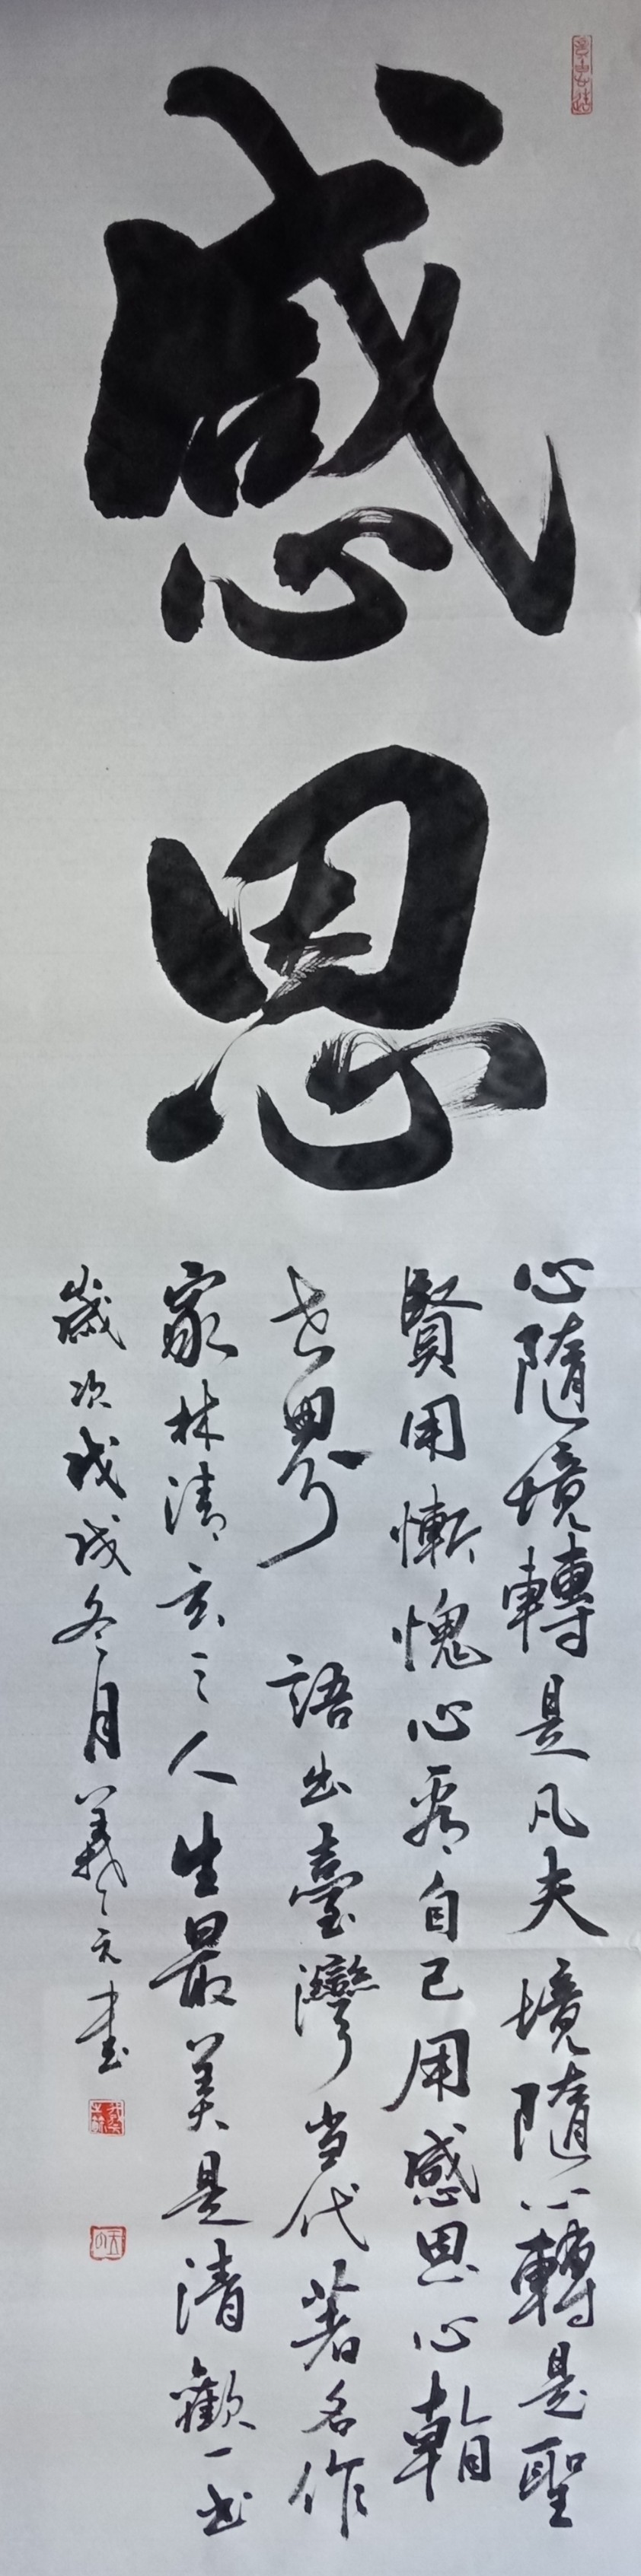 感恩
心隨境轉是凡夫境隨心轉是聖
賢用慚愧心看自己用感恩心看
世界 語出臺灣当代著名作
家林清玄之人生最美是清歡一书
歲次戊戌冬月羲元書